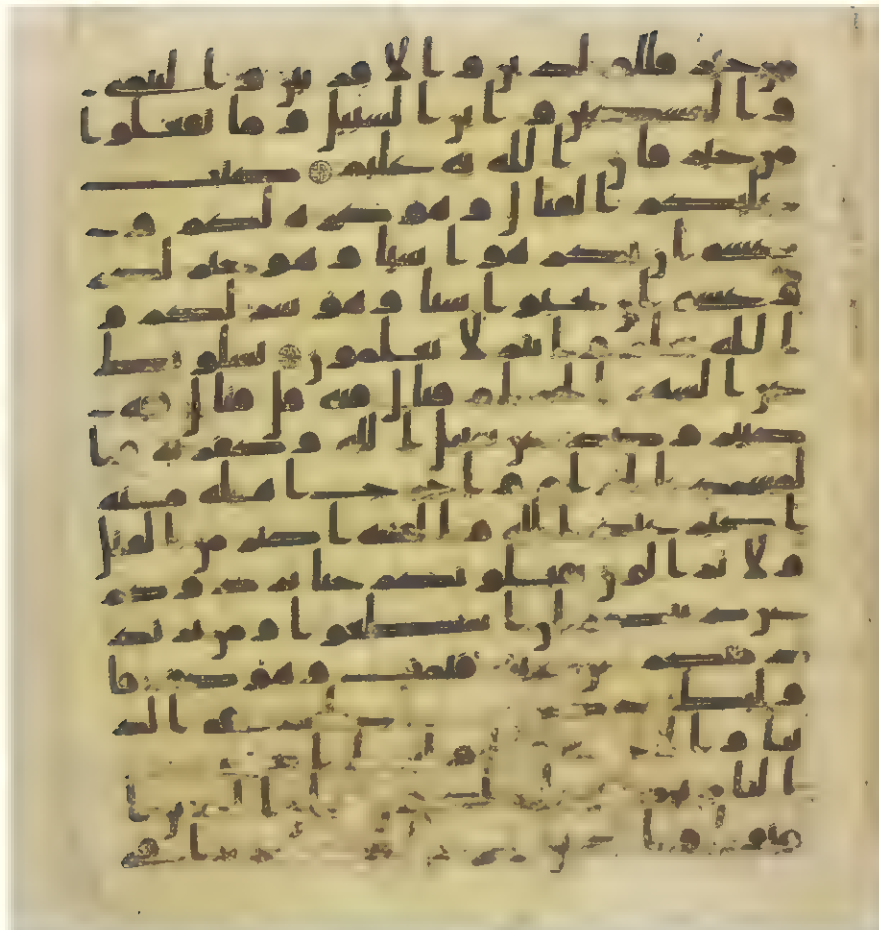 من خير فللولدين والاقربين واليتمى
والمسكين وابن السبيل وما تفعلوا
من خير فان الله به عليم كتب
عليكم القتال وهو كره لكم و
عسى ان تكرهوا شيا وهو خير لكم
وعسى ان تحبوا شيا وهو شر لكم و
الله يعلم وانتم لا تعلمون يسلونك
عن الشهر الحرام قتال فيه قل قتال فيه
كبير وصد عن سبيل الله وكفر به وا
لمسجد الحرام واخراج اهله منه
اكبر عند الله والفتنه اكبر من القتل
ولا يزالون يقتلونكم حتى يردوكم
عن دينكم ان استطعوا ومن يرتد
د منكم عن دينه فيمت وهو كافر فا
ولئك حبطت اعملهم في الد
نيا والاخرة واولئك اصحب
النار هم فيها خلدون ان الذين ا
منوا والذين هاجروا وجهدوا في